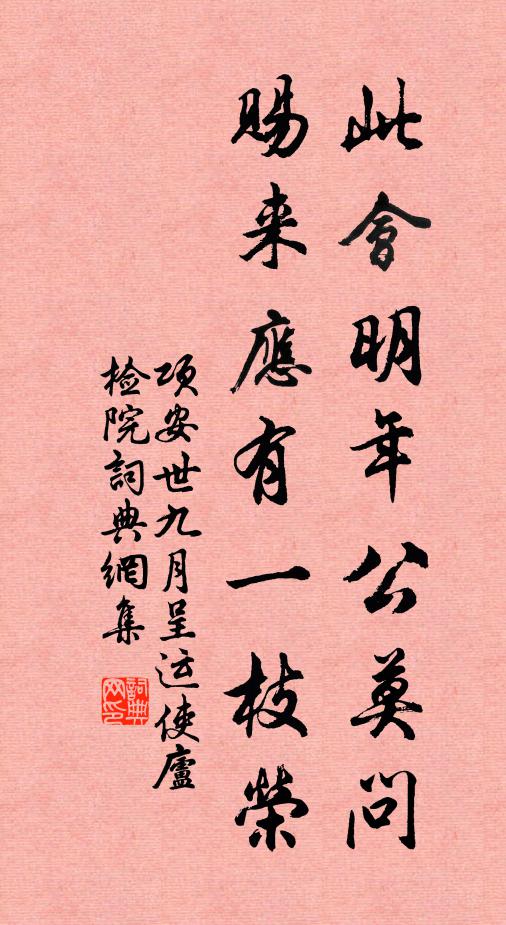 此會明年公莫問
賜来應有一枝榮
项安世九月呈运使廬
检院詞典網集
詞典
网印